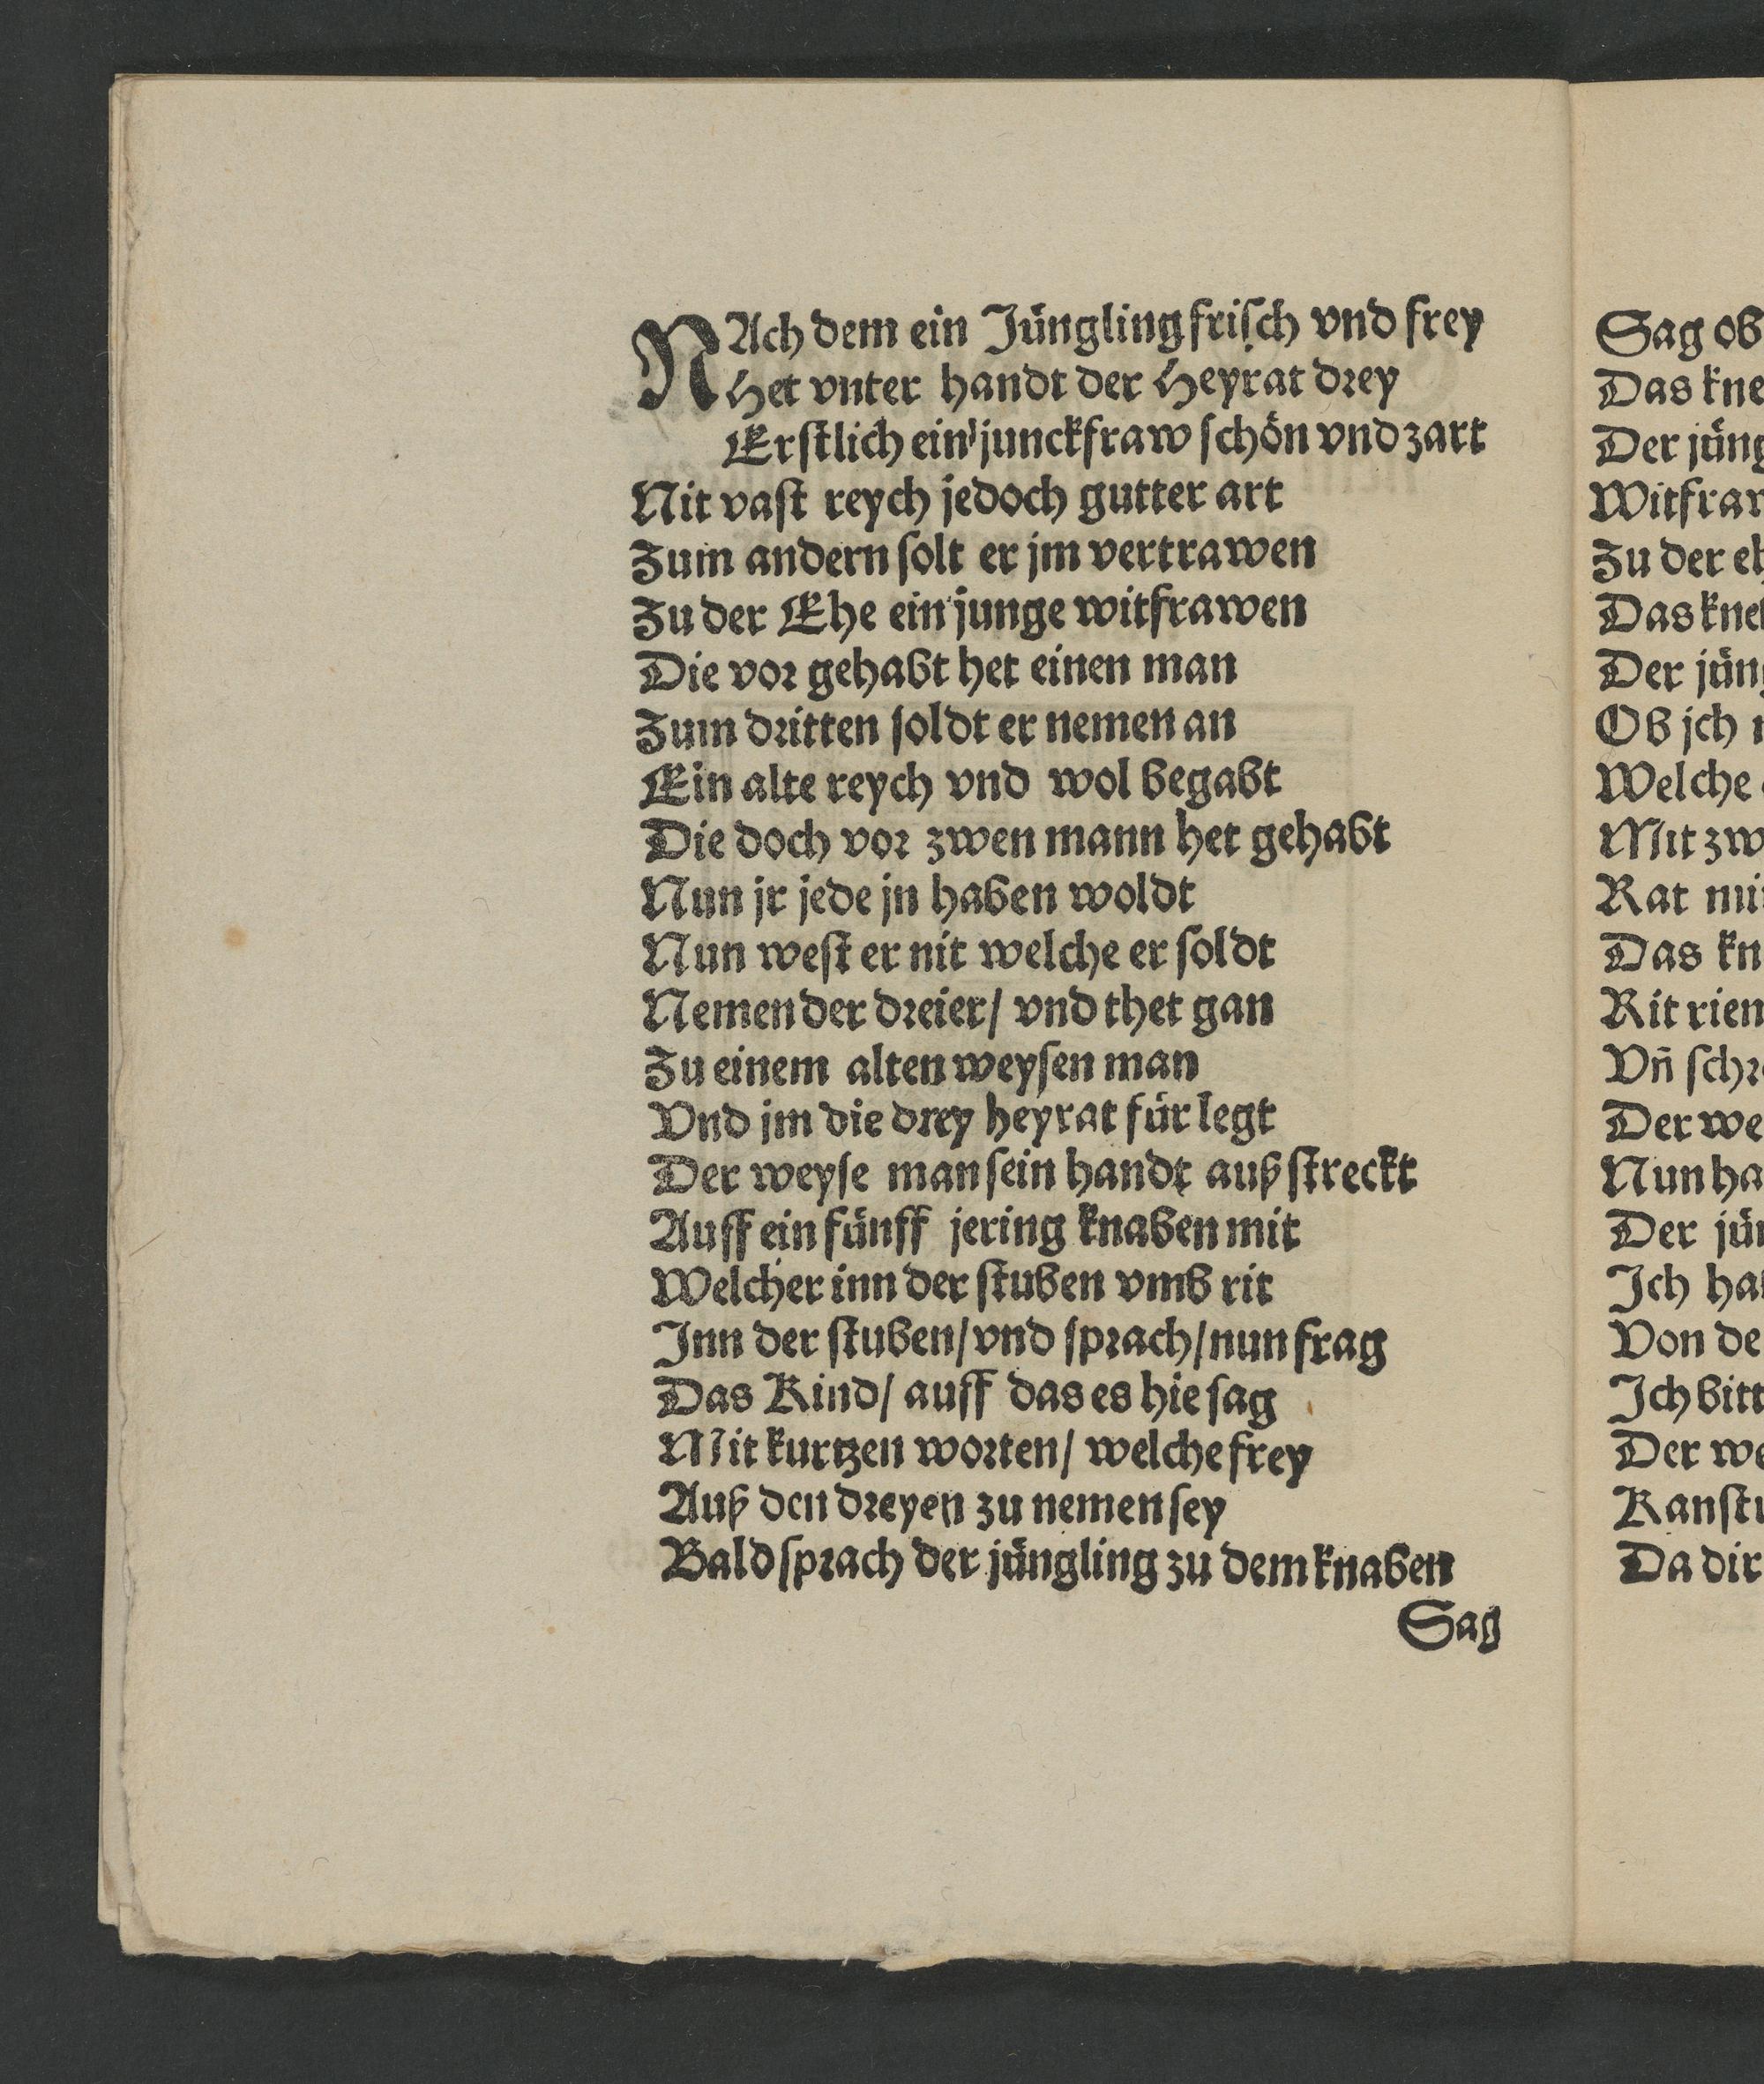 NAch dem ein Jüngling frisch vnd frey
Het vnter handt der Heyrat drey
Erstlich ein junckfraw schön vnd zart
Nit vast reych jedoch gutter art
Zum andern solt er jm vertrawen
Zu der Ehe ein junge witfrawen
Die vor gehabt het einen man
Zum dritten soldt er nemen an
Ein alte reych vnd wol begabt
Die doch vor zwen mann het gehabt
Nun jr jede jn haben woldt
Nun west er nit welche er soldt
Nemen der dreier/ vnd thet gan
Zu einem alten weysen man
Vnd jm die drey heyrat für legt
Der weyse man sein handt auß streckt
Auff ein fünff jering knaben mit
Welcher inn der stuben vmb rit
Inn der stuben/ vnd sprach/ nun frag
Das Kind/ auff das es hie sag
Mit kurtzen worten/ welche frey
Auß den dreyen zu nemen sey
Bald sprach der jüngling zu dem knaben
Sag
Sag ob
Das kne
Der jüng
Witfraw
Zu der eh
Das kne
Der jüng
Ob jch
Welche
Mit zw
Rat mi
Das kn
Rit rien
Vñ schr
Der we
Nun ha
Der jün
Ich ha
Von de
Ich bitt
Der we
Kanstu
Da dir